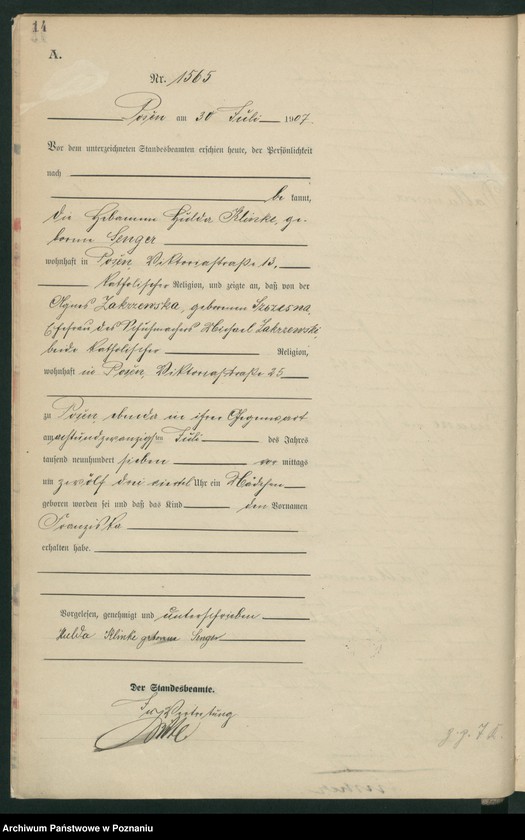 14
A.
Nr. 1565
Posen am 30 Juli 1907.
Vor dem unterzeichneten Standesbeamten erschien heute, der Persönlichkeit
nach
be kannt,
die Hebamme Hulda Klinke, ge-
borene Senger
wohnhaft in Posen, Viktoriastraße 13,
katholischer Religion, und zeigte an, daß von der
Agnes Zakrzewska, geborenen Szczesna,
Ehefrau des Schuhmachers Michael Zakrzewski,
beide katholischer Religion,
wohnhaft in Posen, Viktoriastraße 25
zu Posen, ebenda in ihrer Gegenwart
am achtundzwanzigsten Juli des Jahres
tausend neunhundert sieben vor mittags
um zwölf drei viertel Uhr ein Mädchen
geboren worden sei und daß das Kind den Vornamen
Franziska
erhalten habe.
Vorgelesen, genehmigt und unterschrieben
Hulda Klinke geborene Senger
Der Standesbeamte.
In Vertretung
Archiwum Państwowe w Poznaniu